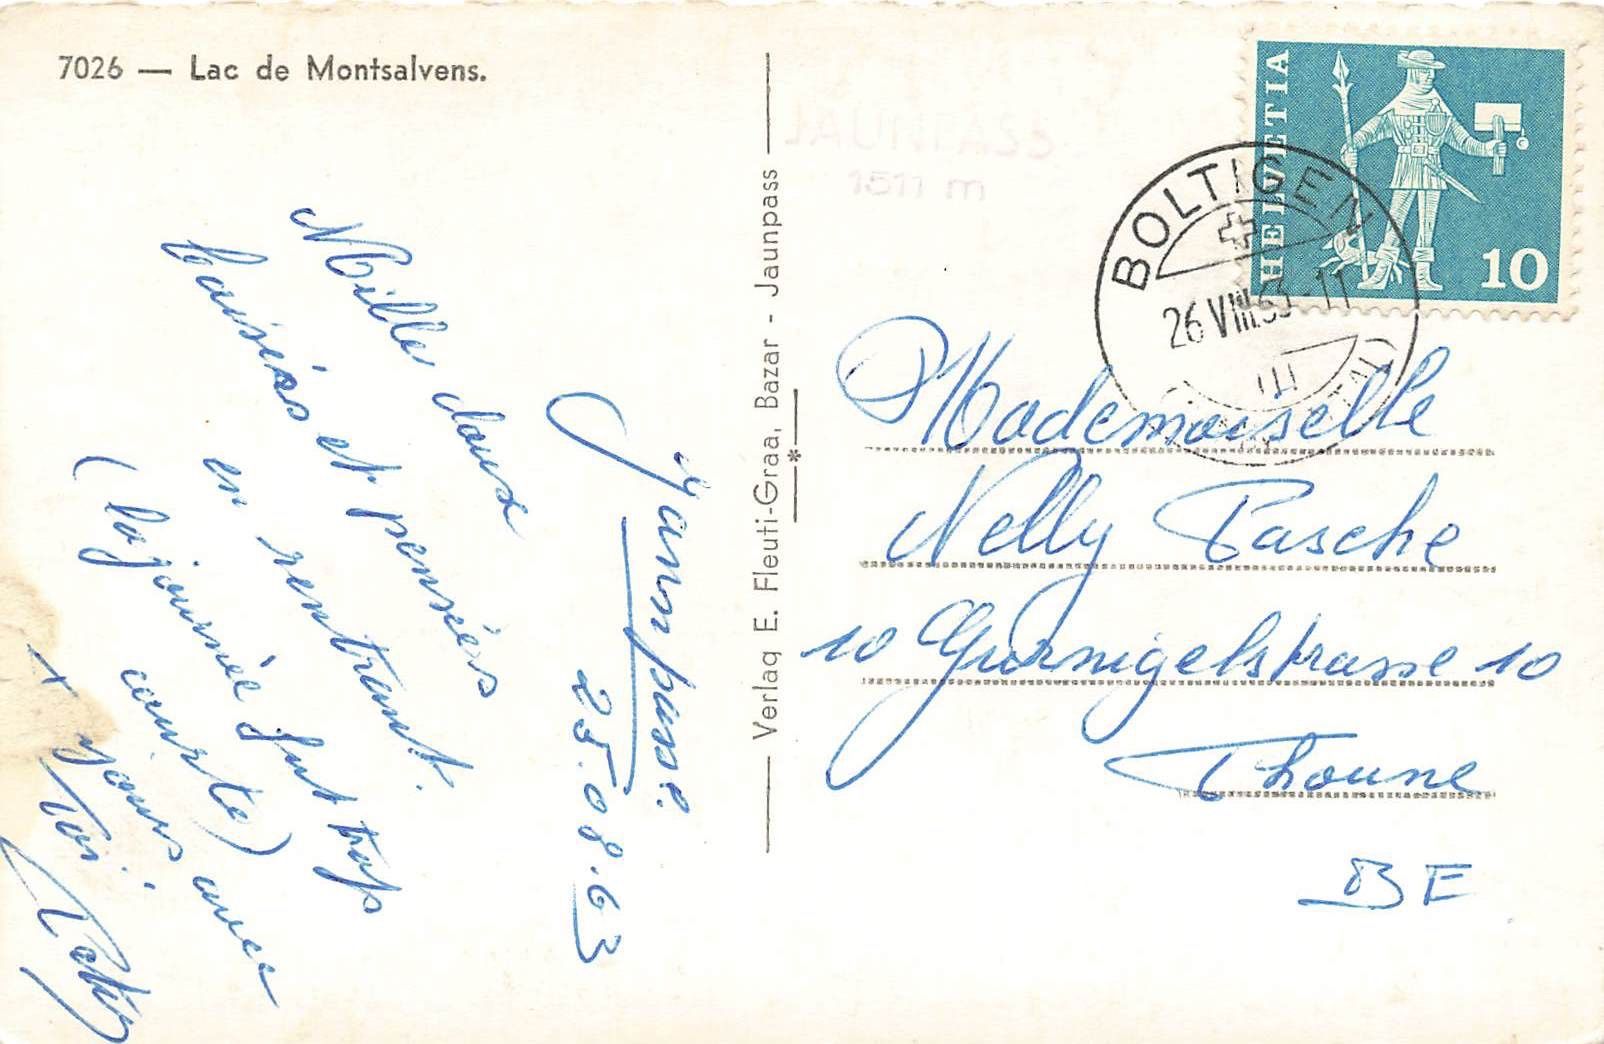 7026 — Lac de Montsalvens.
Jaunpass:
25.08.63
Mille doux
baisers et pensées
en rentrant.
(la journée fut trop
courte)
+ jours avec
Toi!
Verlag E. Fleuti-Graa, Bazar - Jaunpass
JAUNPASS
1511 m
HELVETIA
10
BOLTIGEN
26 VIII 63-11
Mademoiselle
Nelly Pasche
10 Gurnigelstrasse 10
Thoune
BE